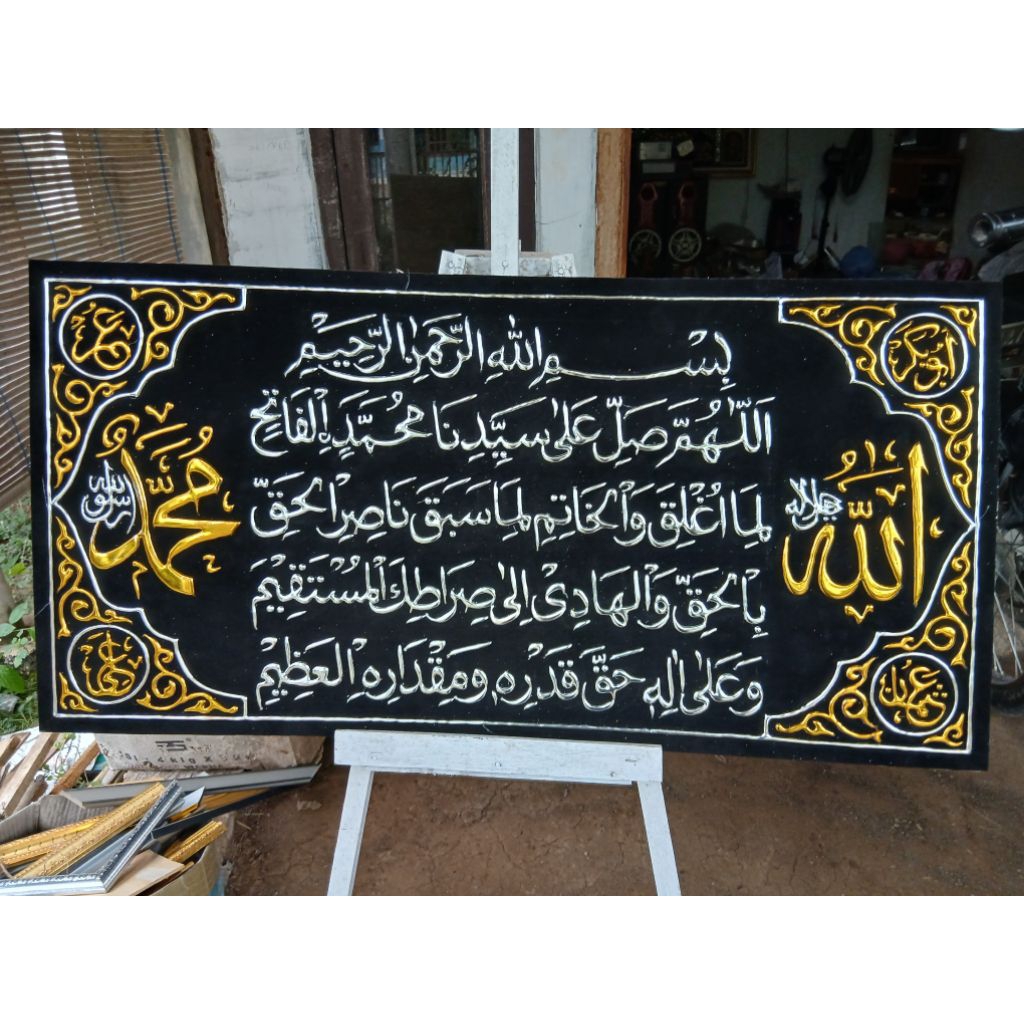 بِسْمِ اللهِ الرَّحْمٰنِ الرَّحِيْمِ
اَللّٰهُمَّ صَلِّ عَلىٰ سَيِّدِنَا مُحَمَّدٍ ࣙالْفَاتِحِ
لِمَا اُغْلِقَ وَالْخَاتِمِ لِمَا سَبَقَ نَاصِرِالْحَقِّ
بِالْحَقِّ وَالْهَادِيْ اِلىٰ صِرَاطِكَ الْمُسْتَقِيْمَ
وَعَلىٰ اٰلِهِ حَقَّ قَدْرِهِ وَمِقْدَارِهِ الْعَظِيْمِ
الله
جل جلاله
محمد
رسول الله
ابوبكر
عمر
عثمان
علي